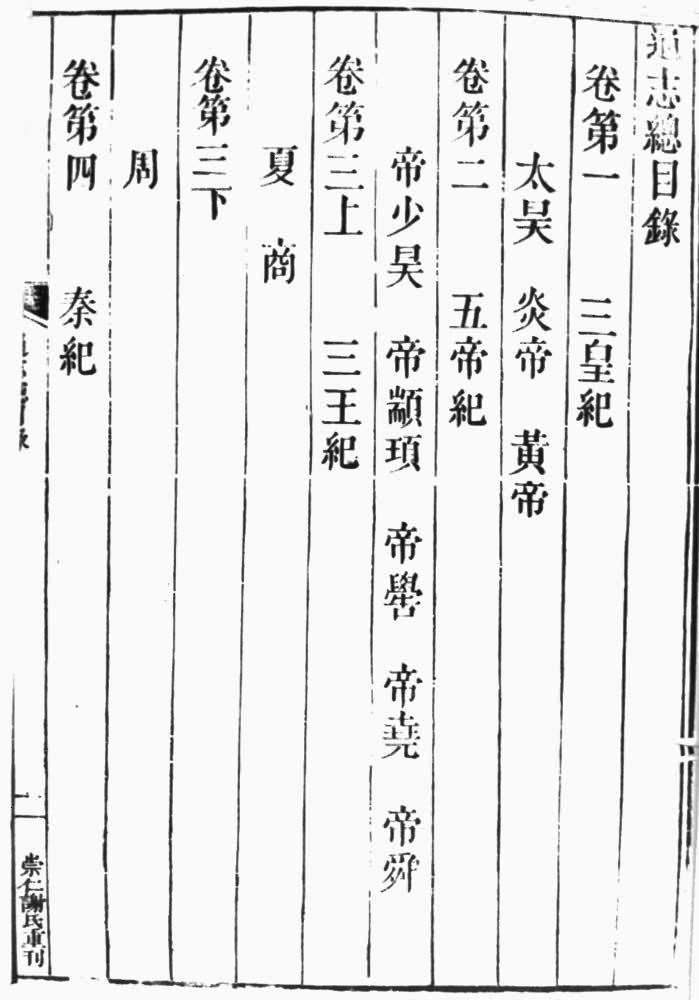 通志總目錄
卷第一 三皇紀
太昊 炎帝 黃帝
卷第二 五帝紀
帝少昊 帝顓頊 帝嚳 帝堯 帝舜
卷第三上 三王紀
夏 商
卷第三下
周
卷第四 秦紀
崇仁謝氏重刊